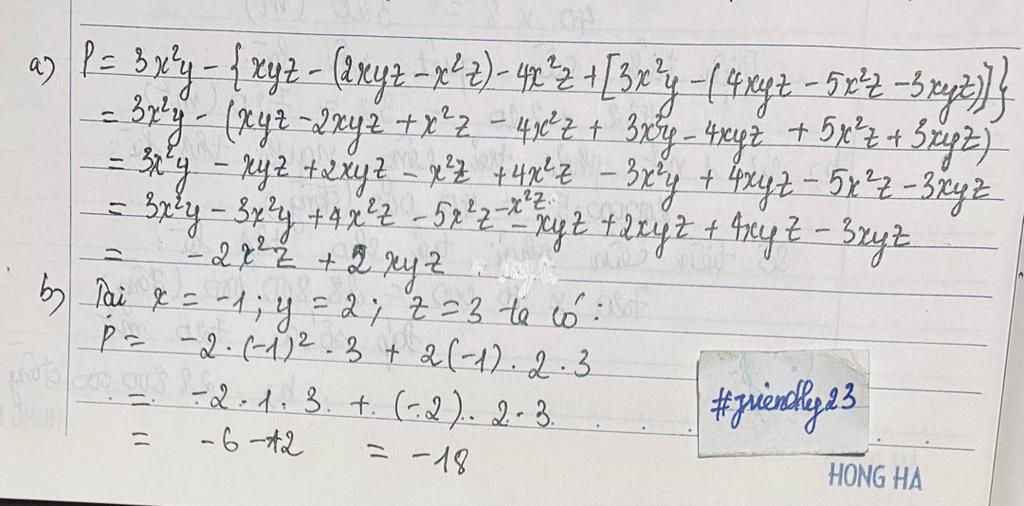 a) P = 3x²y - {xyz - (2xyz - x²z) - 4x²z + [3x²y - (4xyz - 5x²z - 3xyz)]}
= 3x²y - (xyz - 2xyz + x²z - 4x²z + 3x²y - 4xyz + 5x²z + 3xyz)
= 3x²y - xyz + 2xyz - x²z + 4x²z - 3x²y + 4xyz - 5x²z - 3xyz
= 3x²y - 3x²y + 4x²z - 5x²z - x²z - xyz + 2xyz + 4xyz - 3xyz
= -2x²z + 2xyz
b) Tại x = -1; y = 2; z = 3 ta có:
P = -2 . (-1)² . 3 + 2(-1) . 2 . 3
= -2 . 1 . 3 + (-2) . 2 . 3
= -6 - 12 = -18
#friendly23
HONG HA